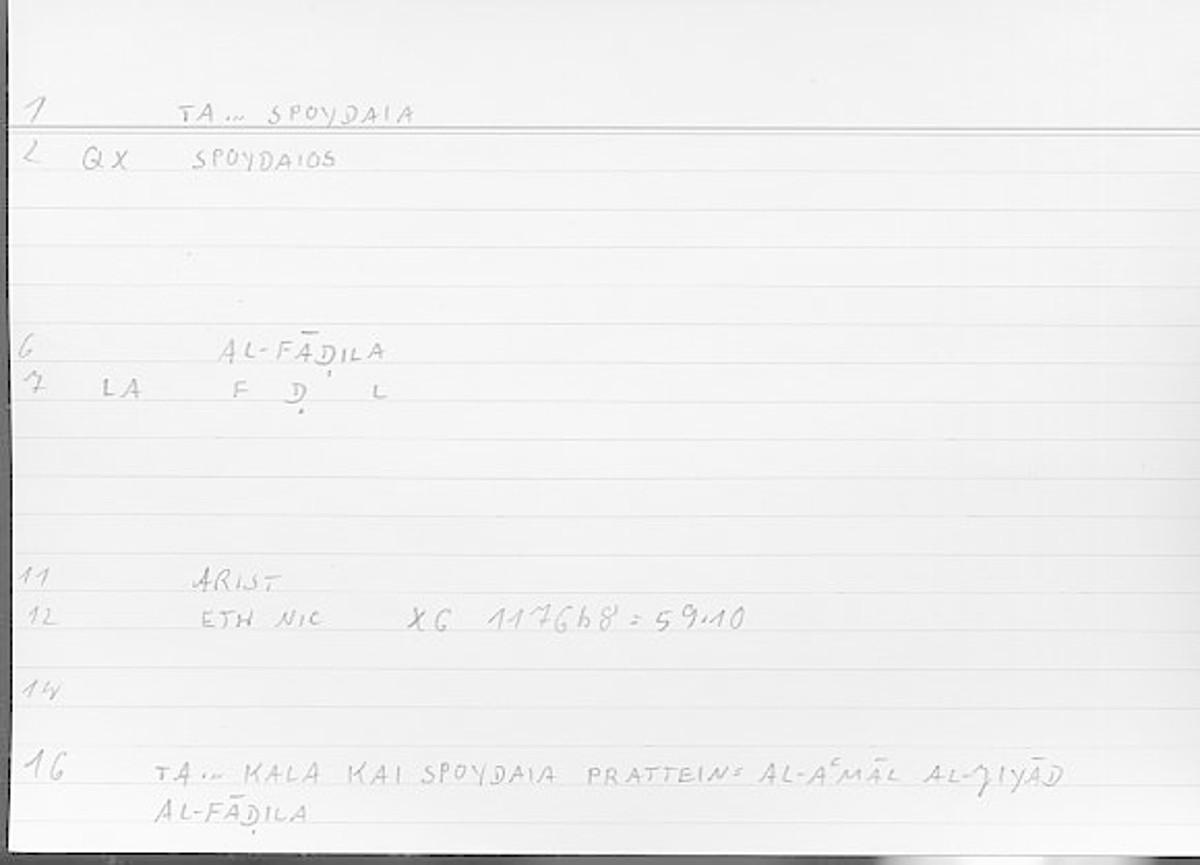 1 TA... SPOYDAIA
2 QX SPOYDAIOS
6 AL-FĀḌILA
7 LA F Ḍ L
11 ARIST
12 ETH NIC X6 1176b8 = 59.10
14
16 TA... KALA KAI SPOYDAIA PRATTEIN = AL-AʿMĀL AL-JIYĀD
AL-FĀḌILA